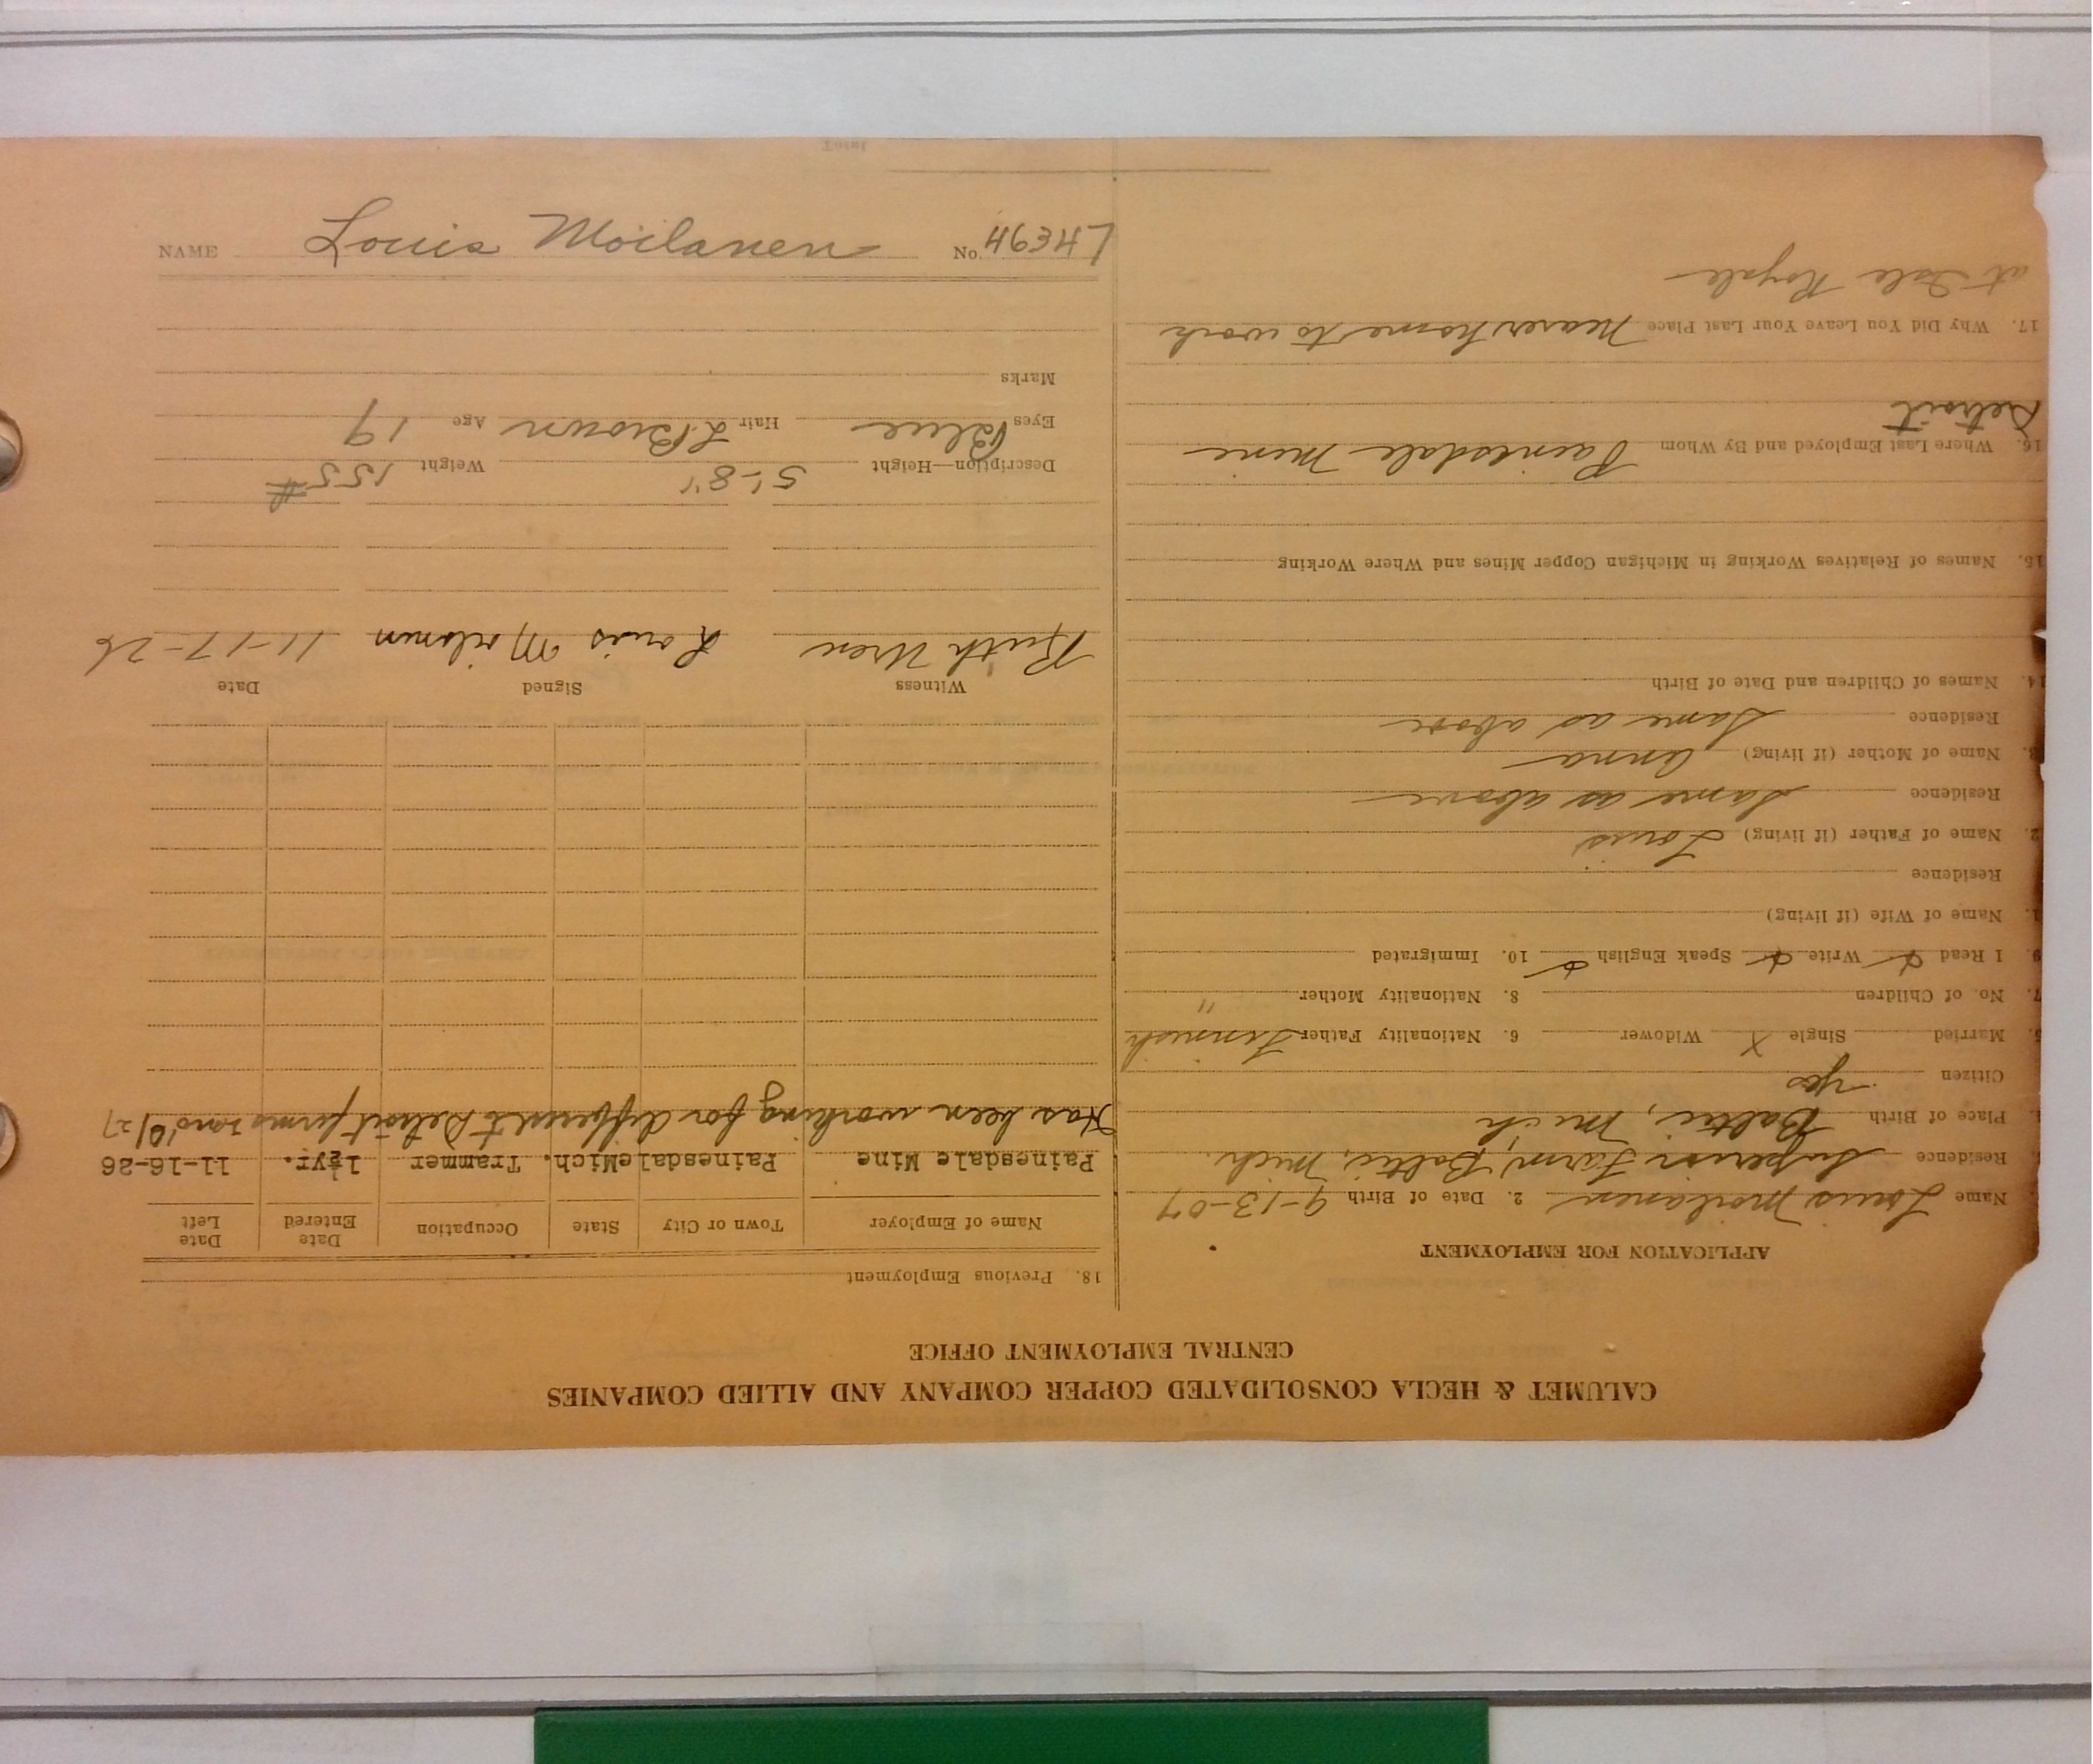 CALUMET & HECLA CONSOLIDATED COPPER COMPANY AND ALLIED COMPANIES
CENTRAL EMPLOYMENT OFFICE
APPLICATION FOR EMPLOYMENT
Name Louis Moilanen 2. Date of Birth 9-13-07
Residence Superior Farm, Baltic, Mich.
Place of Birth Baltic, Mich
Citizen yes
5. Married Single X Widower 6. Nationality Father Finnish
7. No. of Children 8. Nationality Mother "
9. I Read Write Speak English 10. Immigrated
1. Name of Wife (if living)
Residence
2. Name of Father (if living) Louis
Residence Same as above
3. Name of Mother (if living) Anna
Residence Same as above
14. Names of Children and Date of Birth
15. Names of Relatives Working in Michigan Copper Mines and Where Working
16. Where Last Employed and By Whom Painesdale Mine
Detroit
17. Why Did You Leave Your Last Place Nearer home to work
at Isle Royale
18. Previous Employment
Name of Employer Town or City State Occupation Date Entered Date Left
Painesdale Mine Painesdale Mich. Trammer 1½yr. 11-16-26
Has been working for different Detroit firms
Witness Signed Date
Ruth Uren Louis Moilanen 11-17-26
Description—Height 5'-8" Weight 155#
Eyes Blue Hair L Brown Age 19
Marks
NAME Louis Moilanen No.